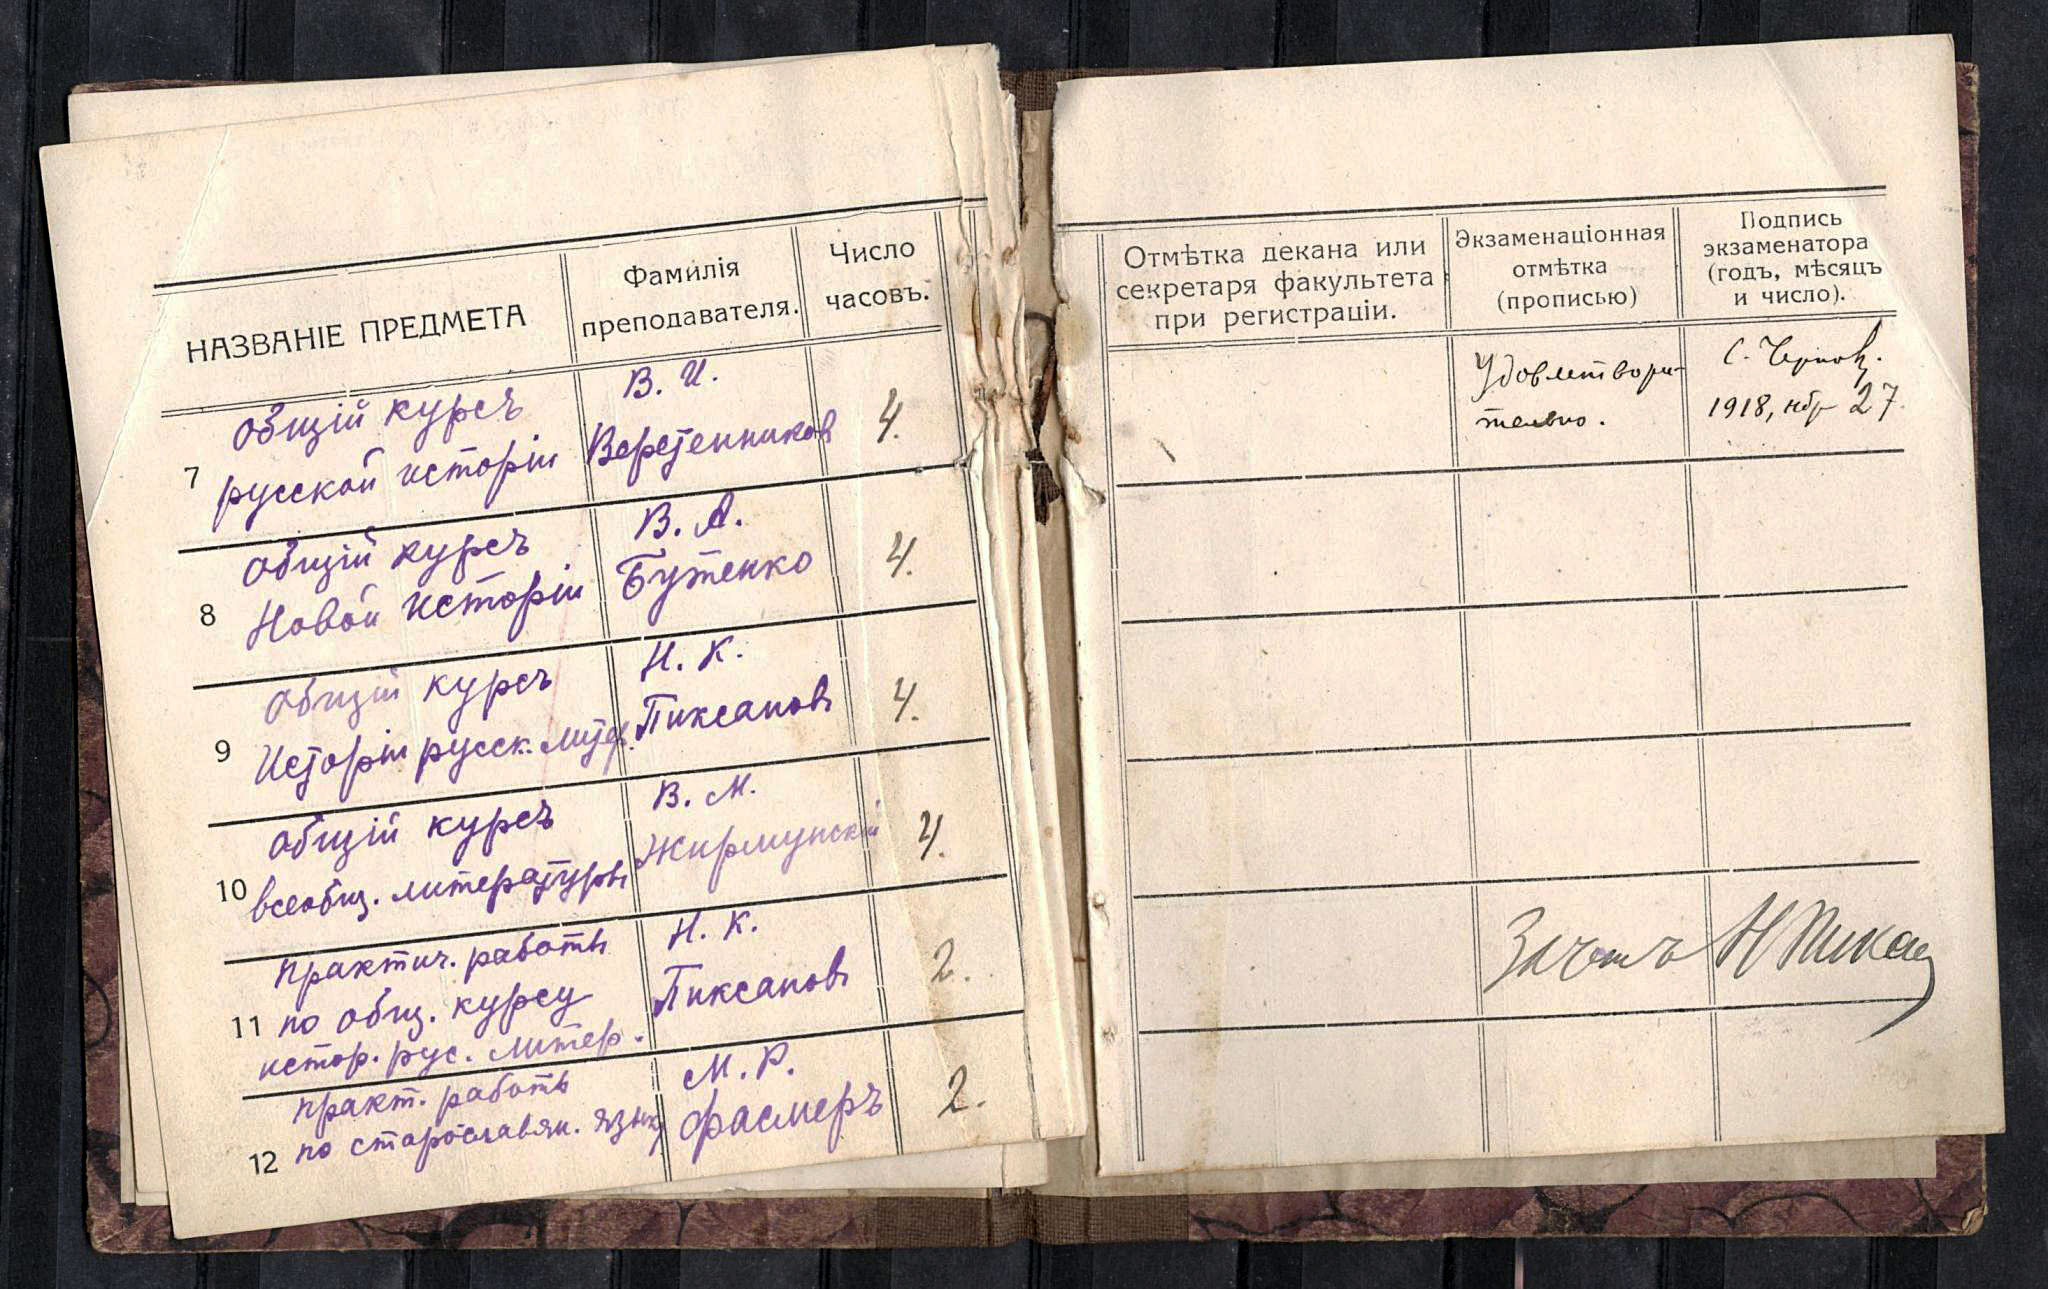 НАЗВАНІЕ ПРЕДМЕТА
Фамилія
преподавателя.
Число
часовъ.
7
общій курсъ
русской исторіи
В. И.
Веретенников
4.
8
общій курсъ
Новой исторіи
В. А.
Бутенко
4.
9
общій курсъ
Исторіи русск. литер.
Н. К.
Пиксановъ
4.
10
общій курсъ
всеобщ. литературы
В. М.
Жирмунскій
4.
11
практич. работы
по общ. курсу
истор. рус. литер.
Н. К.
Пиксановъ
2.
12
практ. работы
по старославян. языку
М. Р.
Фасмеръ
2.
Отмѣтка декана или
секретаря факультета
при регистраціи.
Экзаменаціонная
отмѣтка
(прописью)
Подпись
экзаменатора
(годъ, мѣсяцъ
и число).
Удовлетвори-
тельно.
С. Чернов.
1918, нбр 27.
Зачетъ
Н Пикса